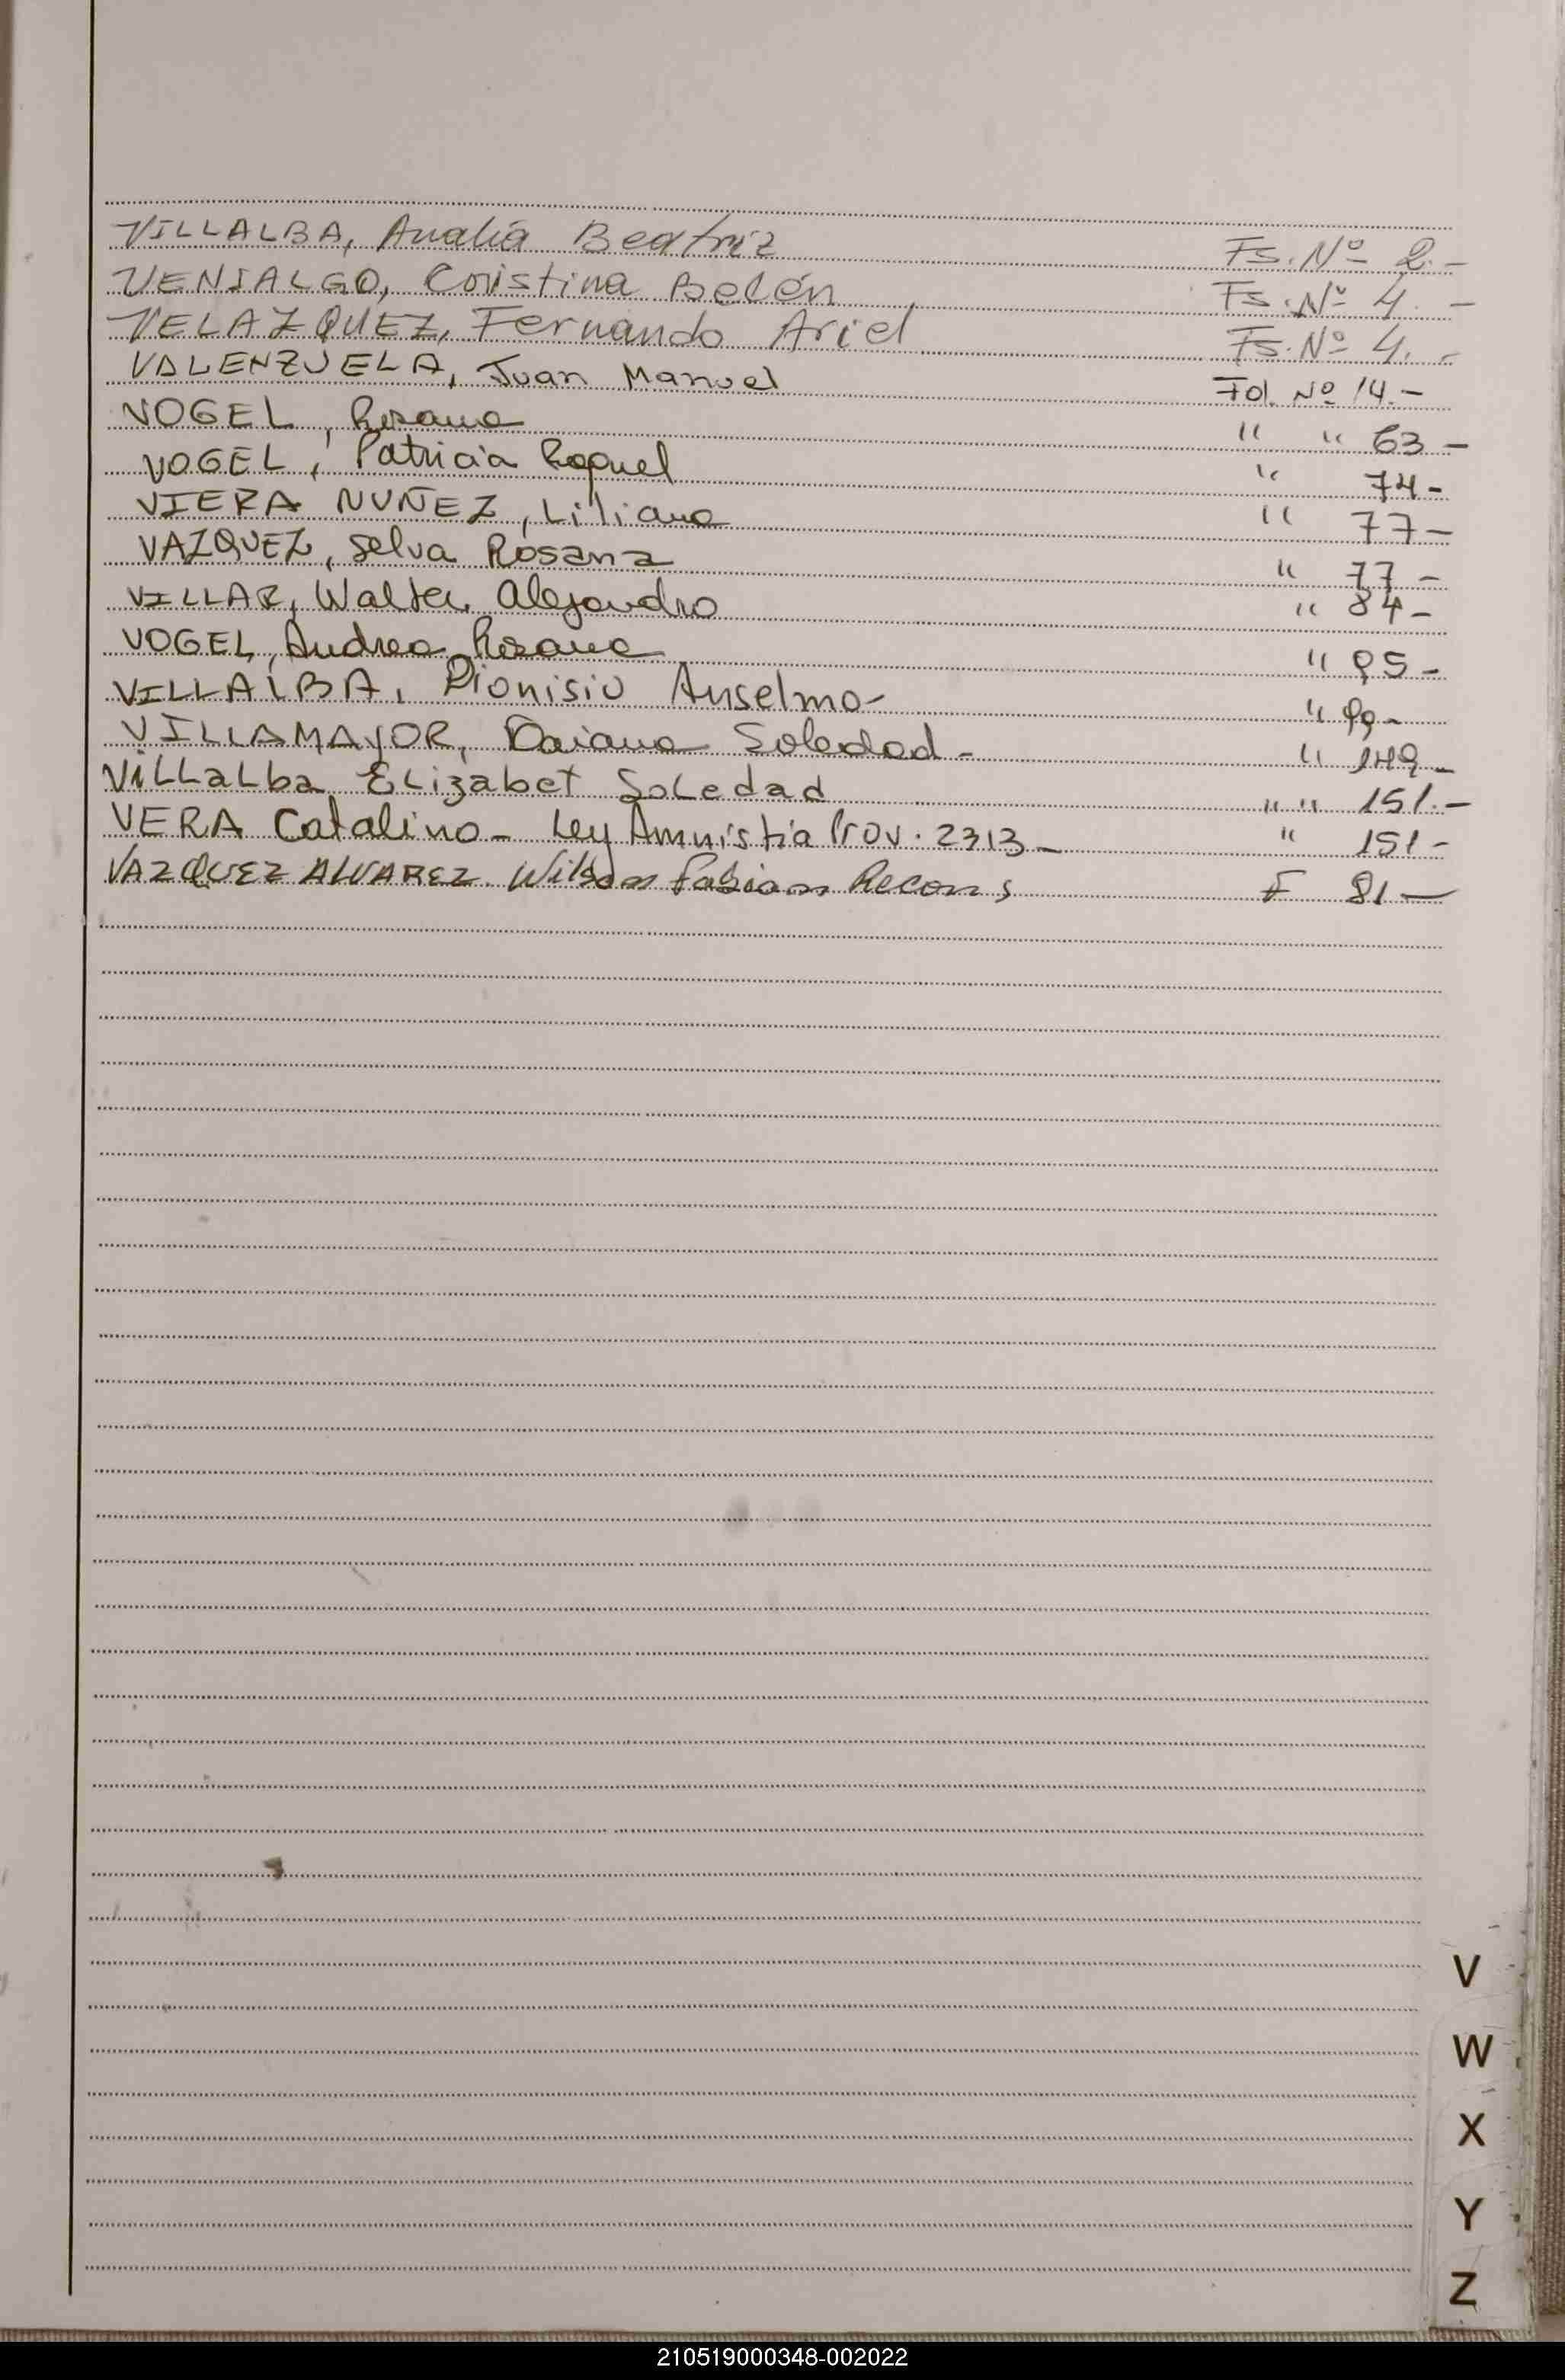 VILLALBA, Analía Beatriz Fs. Nº 2.-
VENIALGO, Cristina Belén Fs. Nº 4.-
VELAZQUEZ, Fernando Ariel Fs. Nº 4.-
VALENZUELA, Juan Manuel Fol. Nº 14.-
VOGEL, Rosana " " 63-
VOGEL, Patricia Raquel " 74-
VIERA NUÑEZ, Liliana " 77-
VAZQUEZ, Selva Rosana " 77-
VILLAR, Walter Alejandro " 84-
VOGEL, Andrea Rosana " 95-
VILLALBA, Dionisio Anselmo- " 99-
VILLAMAYOR, Daiana Soledad- " 149-
Villalba Elizabet Soledad " " 151.-
VERA Catalino- Ley Amnistia Prov. 2313- " 151-
VAZQUEZ ALVAREZ Wilson Fabian Recon s F 81-
V
W
X
Y
Z
210519000348-002022